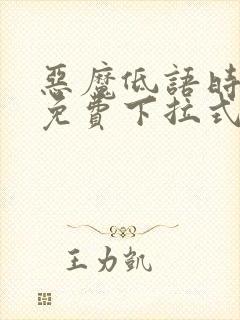 惡魔低語時
免費下拉式
王力凱